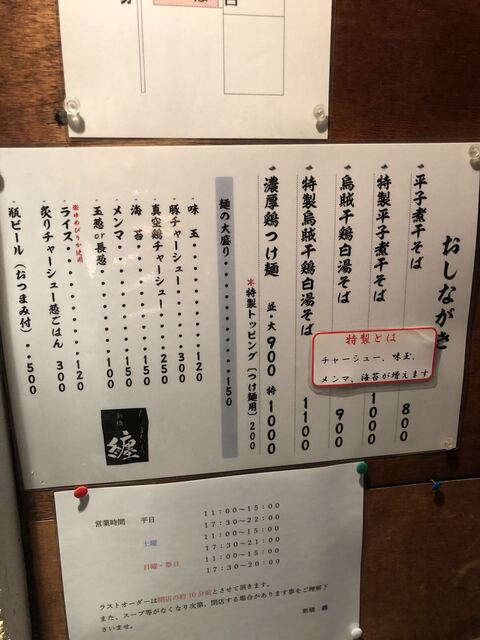 おしながき
平子煮干そば 800
特製平子煮干そば 1000
烏賊干鶏白湯そば 900
特製烏賊干鶏白湯そば 1100
特製とは
チャーシュー、味玉、
メンマ、海苔が増えます
濃厚鶏つけ麺 並・大 900 特 1000
※特製トッピング(つけ麺用) 200
麺の大盛り・・・・・・・・・・・150
味 玉・・・・・・・・120
豚チャーシュー・・・・・300
真空鶏チャーシュー・・・250
海 苔・・・・・・・・150
メンマ・・・・・・・・150
玉葱or長葱・・・・・・100
※ゆめぴりか使用
ライス・・・・・・・・120
炙りチャーシュー葱ごはん 300
瓶ビール(おつまみ付)・・500
新橋
纏
営業時間 平日 11:00~15:00
17:30~22:00
土曜 11:00~15:00
17:30~21:00
日曜・祭日 11:00~15:00
17:30~20:00
ラストオーダーは閉店の約10分前とさせて頂きます。
また、スープ等がなくなり次第、閉店する場合があります事をご理解下
さいませ。
新橋 纏